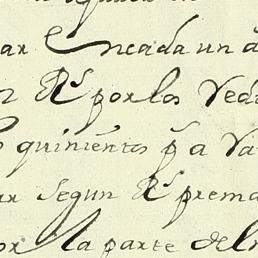 ar Encada un a
n Rs por los Ved
quinientos ps a Va
ar segun Rs prema
or la parte del